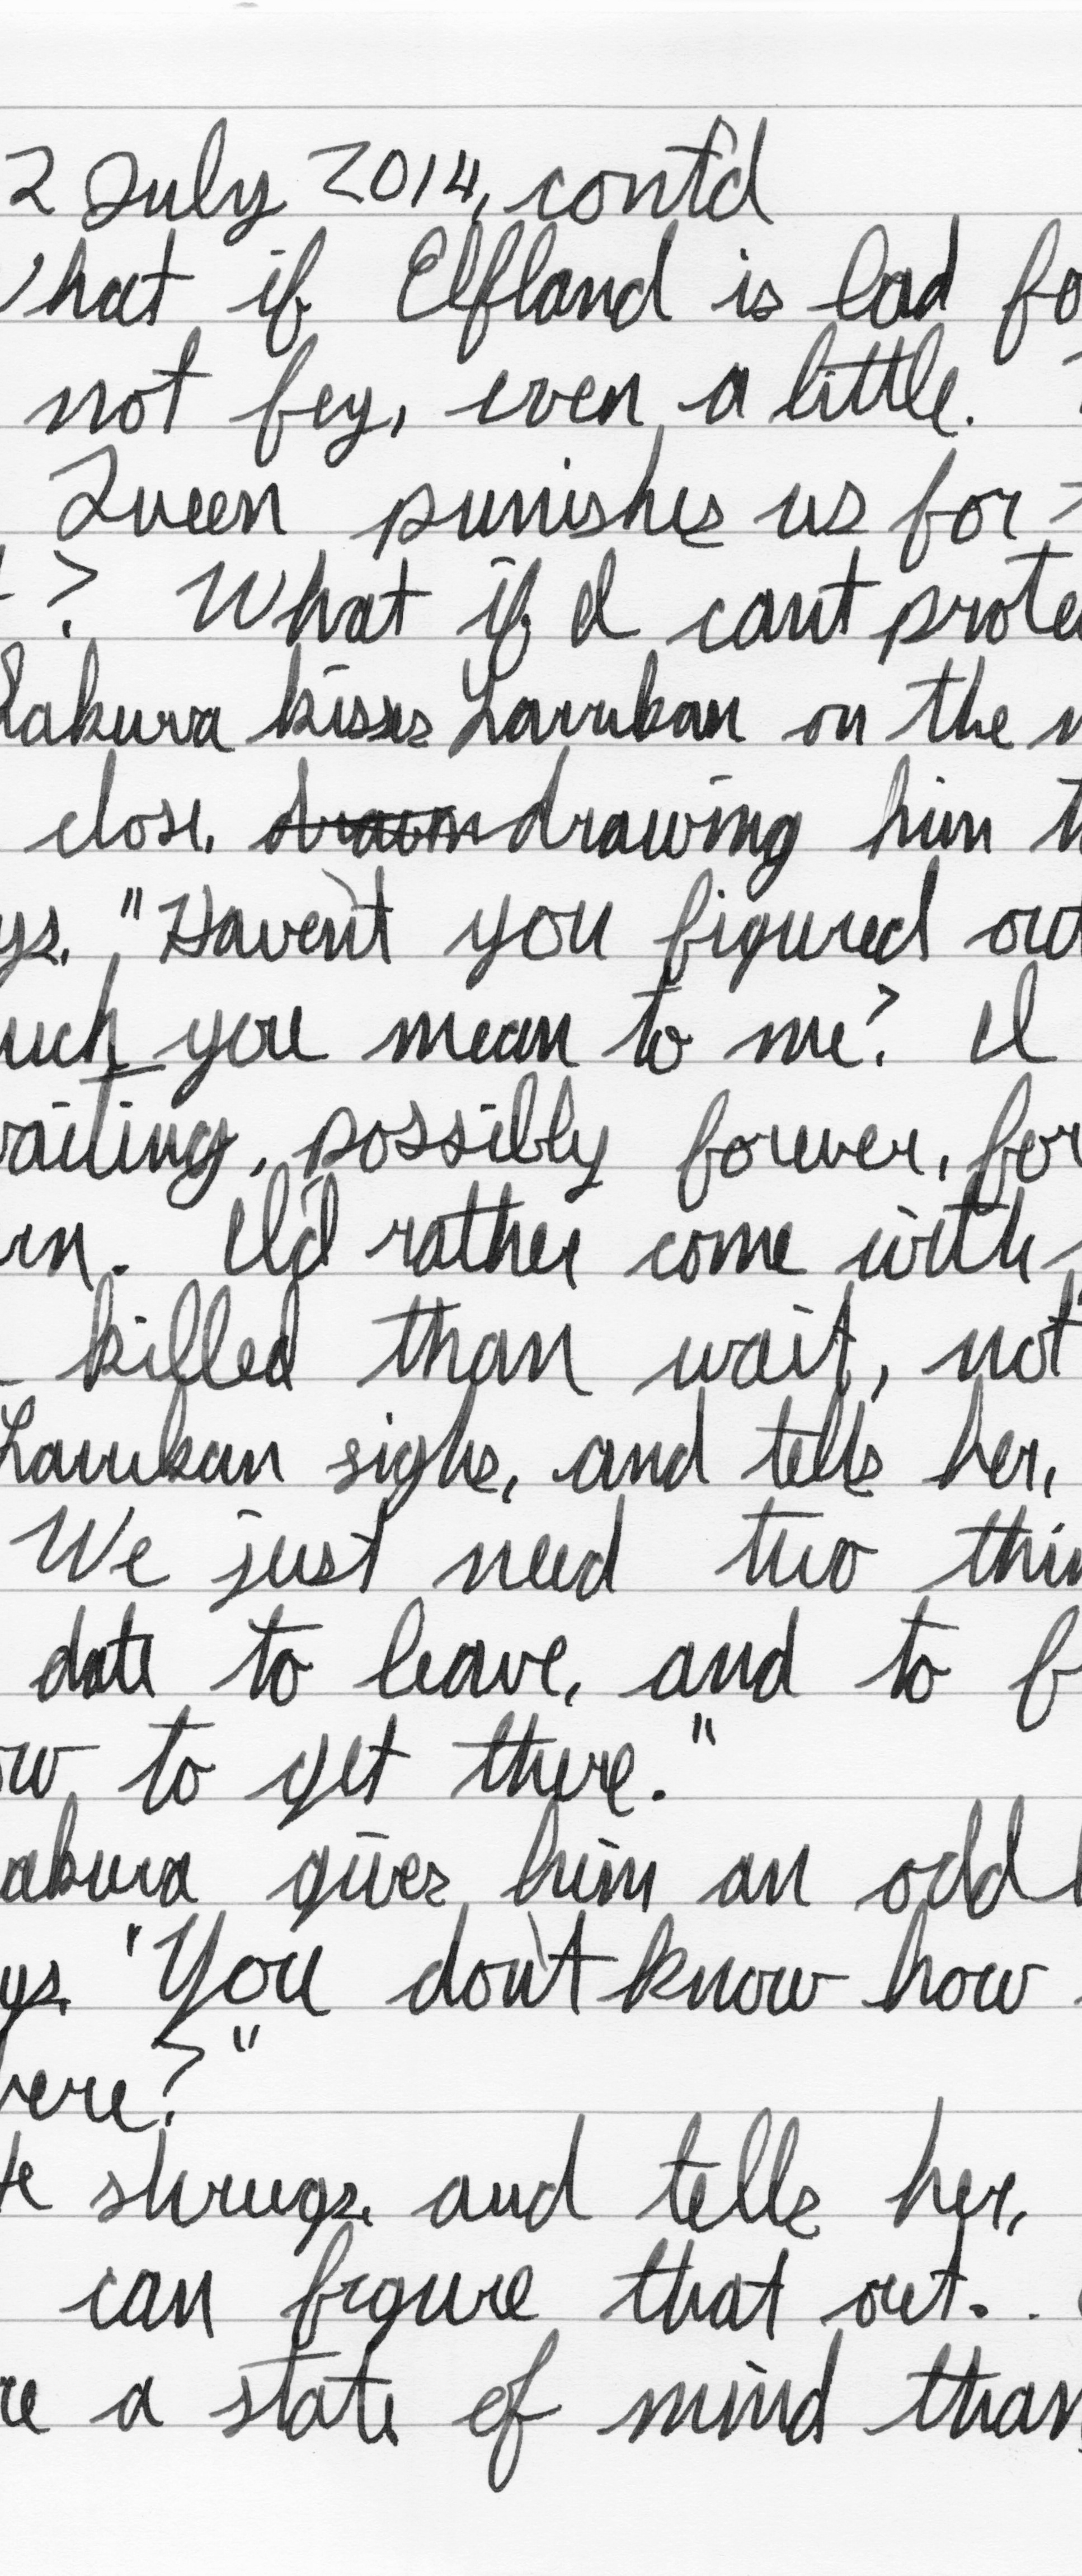 2 July 2014, cont'd
What if Elfland is bad fo
not fey, even a little.
Queen punishes us for
? What if I can't prote
Sakura kisses Larrukan on the
close, drawing him t
ys, "Haven't you figured out
uch you mean to me? I
vaiting, possibly forever, for
rn. I'd rather come with
killed than wait, not
Larrukan sighs, and tells her,
We just need two thin
date to leave, and to f
ow to get there."
akura gives him an odd l
ys, "You don't know how
here?"
He shrugs, and tells her,
can figure that out.
re a state of mind than